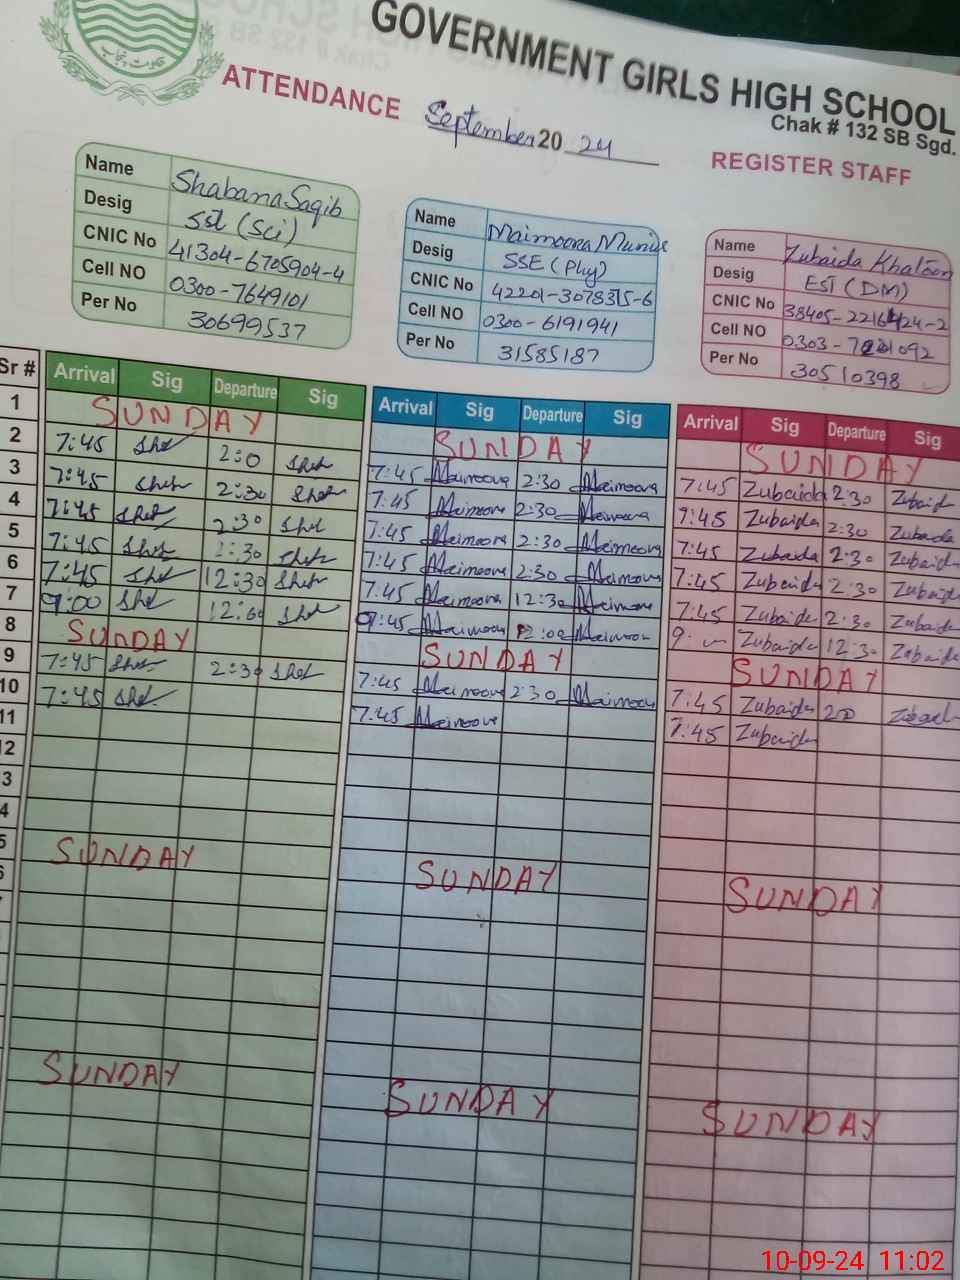 GOVERNMENT GIRLS HIGH SCHOOL
Chak # 132 SB Sgd.
ATTENDANCE September 20 24 REGISTER STAFF
Name Shabana Saqib
Desig SST (Sci)
CNIC No 41304-6705904-4
Cell NO 0300-7649101
Per No 30699537
Name Maimoona
Desig SSE (Phy)
CNIC No 42201-3078315-6
Cell NO 0300-6191941
Per No 31585187
Name Zubaida Khatoon
Desig EST (DM)
CNIC No
Cell NO
Per No 30510398
Sr #
1
2
3
4
5
6
7
8
9
10
11
12
3
4
5
6
Arrival Sig Departure Sig
SUNDAY
7:45 She 2:0 Sheh
7:45 Sheh 2:30 Sheh
7:45 Sheh 2:30 Shel
7:45 Sheh 2:30 Sheh
7:45 She 12:30 Sheh
9:00 She She
SUNDAY
7:45 Sheh 2:30 Shel
7:45 Shel
SUNDAY
SUNDAY
Arrival Sig Departure Sig
SUNDAY
7:45 Maimoona 2:30 Maimoona
7:45 Maimoona 2:30 Maimoona
7:45 Maimoona 2:30 Maimoona
7:45 Maimoona 2:30 Maimoona
7:45 Maimoona 12:30 Maimoona
9:45 Maimoona 12:00 Maimoona
SUNDAY
7:45 Maimoona 2:30 Maimoona
7:45 Maimoona
SUNDAY
SUNDAY
Arrival Sig Departure Sig
SUNDAY
7:45 Zubaida 2:30 Zubaida
7:45 Zubaida 2:30 Zubaida
7:45 Zubaida 2:30 Zubaida
7:45 Zubaida 2:30 Zubaida
7:45 Zubaida 2:30 Zubaida
9: Zubaida 12:30 Zubaida
SUNDAY
7:45 Zubaida
7:45 Zubaida
SUNDAY
SUNDAY
10-09-24 11:02